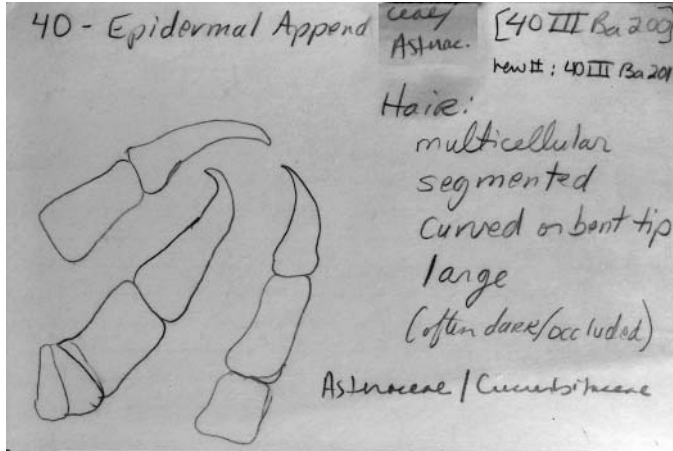 40 - Epidermal Append
ceae/
Asterac.
[40 III Ba 200]
new #: 40 III Ba 201
Hair:
multicellular
segmented
curved or bent tip
large
(often dark/occluded)
Asteraceae / Cucurbitaceae